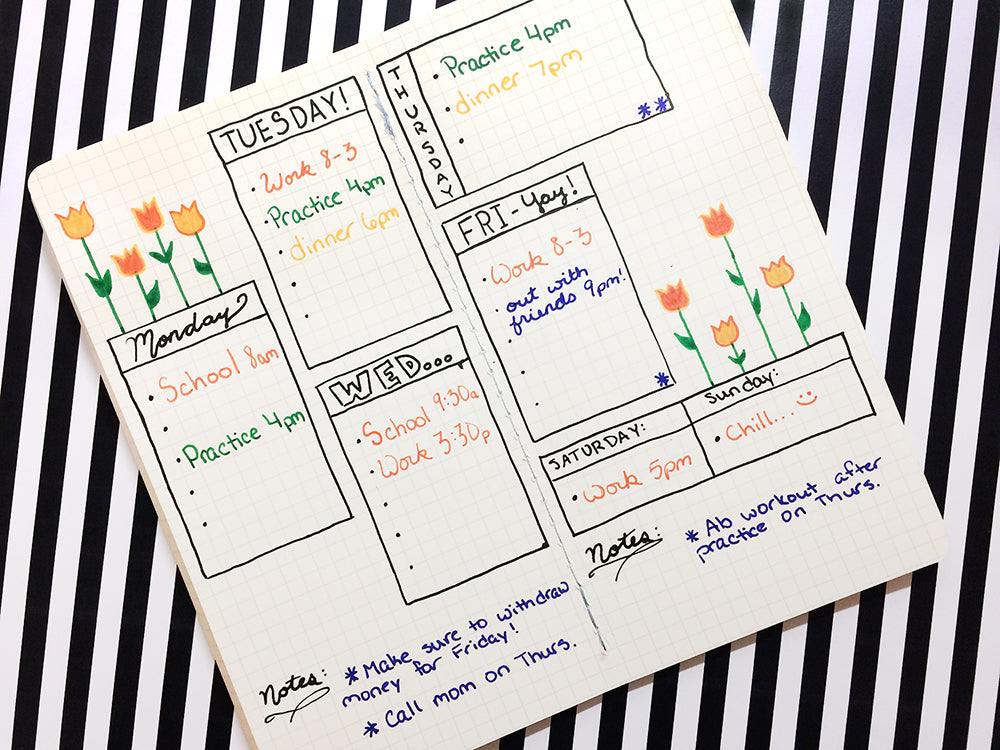 TUESDAY!
Work 8-3
Practice 4pm
dinner 6pm
Monday
School 8am
Practice 4pm
WED...
School 9:30a
Work 3:30p
Notes:
*Make sure to withdraw
money for Friday!
* Call mom on Thurs.
THURSDAY
Practice 4pm
dinner 7pm
**
FRI-Yay!
Work 8-3
out with
friends 9pm!
*
SATURDAY:
Work 5pm
Sunday:
Chill... :)
Notes:
* Ab workout after
practice on Thurs.